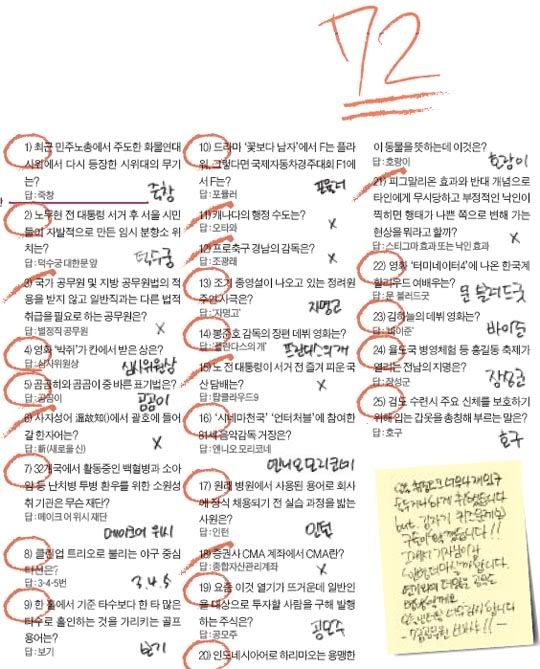 72
1) 최근 민주노총에서 주도한 화물연대
시위에서 다시 등장한 시위대의 무기
는?
답 : 죽창
죽창
2) 노무현 전 대통령 서거 후 서울 시민
들이 자발적으로 만든 임시 분향소 위
치는?
답 : 덕수궁 대한문 앞
덕수궁
3) 국가 공무원 및 지방 공무원법의 적
용을 받지 않고 일반직과는 다른 법적
취급을 필요로 하는 공무원은?
답 : 별정직 공무원
×
4) 영화 '박쥐'가 칸에서 받은 상은?
답 : 심사위원상
심사위원상
5) 곰곰히와 곰곰이 중 바른 표기법은?
답 : 곰곰이
곰곰이
6) 사자성어 溫故知()에서 괄호에 들어
갈 한자어는?
답 : 新(새로울 신)
×
7) 32개국에서 활동중인 백혈병과 소아
암 등 난치병 투병 환우를 위한 소원성
취 기관은 무슨 재단?
답 : 메이크 어 위시 재단
메이크어 위시
8) 클린업 트리오로 불리는 야구 중심
타선은?
답 : 3·4·5번
3.4.5
9) 한 홀에서 기준 타수보다 한 타 많은
타수로 홀인하는 것을 가리키는 골프
용어는?
답 : 보기
보기
10) 드라마 '꽃보다 남자'에서 F는 플라
워, 그렇다면 국제자동차경주대회 F1에
서 F는?
답 : 포뮬러
포뮬러
11) 캐나다의 행정 수도는?
답 : 오타와
×
12) 프로축구 경남의 감독은?
답 : 조광래
×
13) 조기 종영설이 나오고 있는 정려원
주연 사극은?
답 : '자명고'
자명고
14) 봉준호 감독의 장편 데뷔 영화는?
답 : '플란다스의 개'
프란다스의개
15) 노 전 대통령이 서거 전 즐겨 피운 국
산 담배는?
답 : 클라우드9
×
16) '시네마천국' '언터처블'에 참여한
81세 음악감독 거장은?
답 : 엔니오 모리코네
엔니오모리코네
17) 원래 병원에서 사용된 용어로 회사
에 정식 채용되기 전 실습 과정을 밟는
사원은?
답 : 인턴
인턴
18) 증권사 CMA 계좌에서 CMA란?
답 : 종합자산관리계좌
×
19) 요즘 이것 열기가 뜨거운데 일반인
을 대상으로 투자할 사람을 구해 발행
하는 주식은?
답 : 공모주
공모주
20) 인도네시아어로 하리마오는 용맹한
이 동물을 뜻하는데 이것은?
답 : 호랑이
호랑이
21) 피그말리온 효과와 반대 개념으로
타인에게 무시당하고 부정적인 낙인이
찍히면 행태가 나쁜 쪽으로 변해 가는
현상을 뭐라고 할까?
답 : 스티그마 효과 또는 낙인 효과
×
22) 영화 '터미네이터4'에 나온 한국계
할리우드 여배우는?
답 : 문 블러드굿
문 블러드굿
23) 김하늘의 데뷔 영화는?
답 : '바이준'
바이준
24) 율도국 병영체험 등 홍길동 축제가
열리는 전남의 지명은?
답 : 장성군
장성군
25) 검도 수련시 주요 신체를 보호하기
위해 입는 갑옷을 총칭해 부르는 말은?
답 : 호구
호구